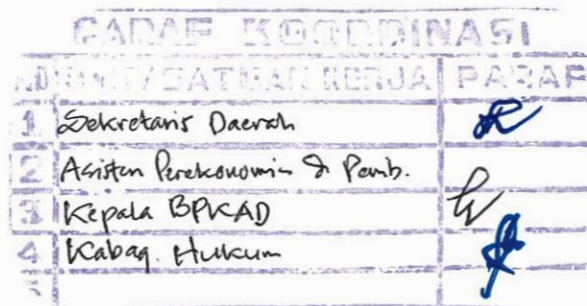 PARAF KOORDINASI
NO UNIT/SATUAN KERJA PARAF
1 Sekretaris Daerah
2 Asisten Perekonomin & Pemb.
3 Kepala BPKAD
4 Kabag. Hukum
5